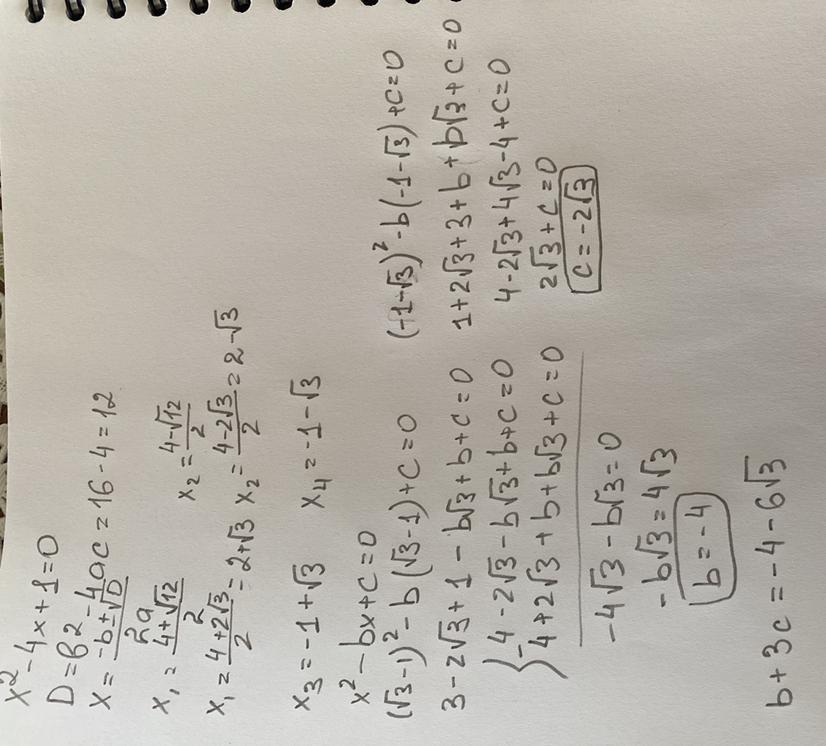 x² - 4x + 1 = 0
D = b2 - 4ac = 16 - 4 = 12
x = (-b ± √D)/2a
x₁ = (4 + √12)/2    x₂ = (4 - √12)/2
x₁ = (4 + 2√3)/2 = 2 + √3    x₂ = (4 - 2√3)/2 = 2 - √3
x₃ = -1 + √3    x₄ = -1 - √3
x² - bx + c = 0
(√3 - 1)² - b(√3 - 1) + c = 0
3 - 2√3 + 1 - b√3 + b + c = 0
{ 4 - 2√3 - b√3 + b + c = 0
- 4 + 2√3 + b + b√3 + c = 0
-4√3 - b√3 = 0
-b√3 = 4√3
b = -4
(-1 - √3)² - b(-1 - √3) + c = 0
1 + 2√3 + 3 + b + b√3 + c = 0
4 - 2√3 + 4√3 - 4 + c = 0
2√3 + c = 0
c = -2√3
b + 3c = -4 - 6√3